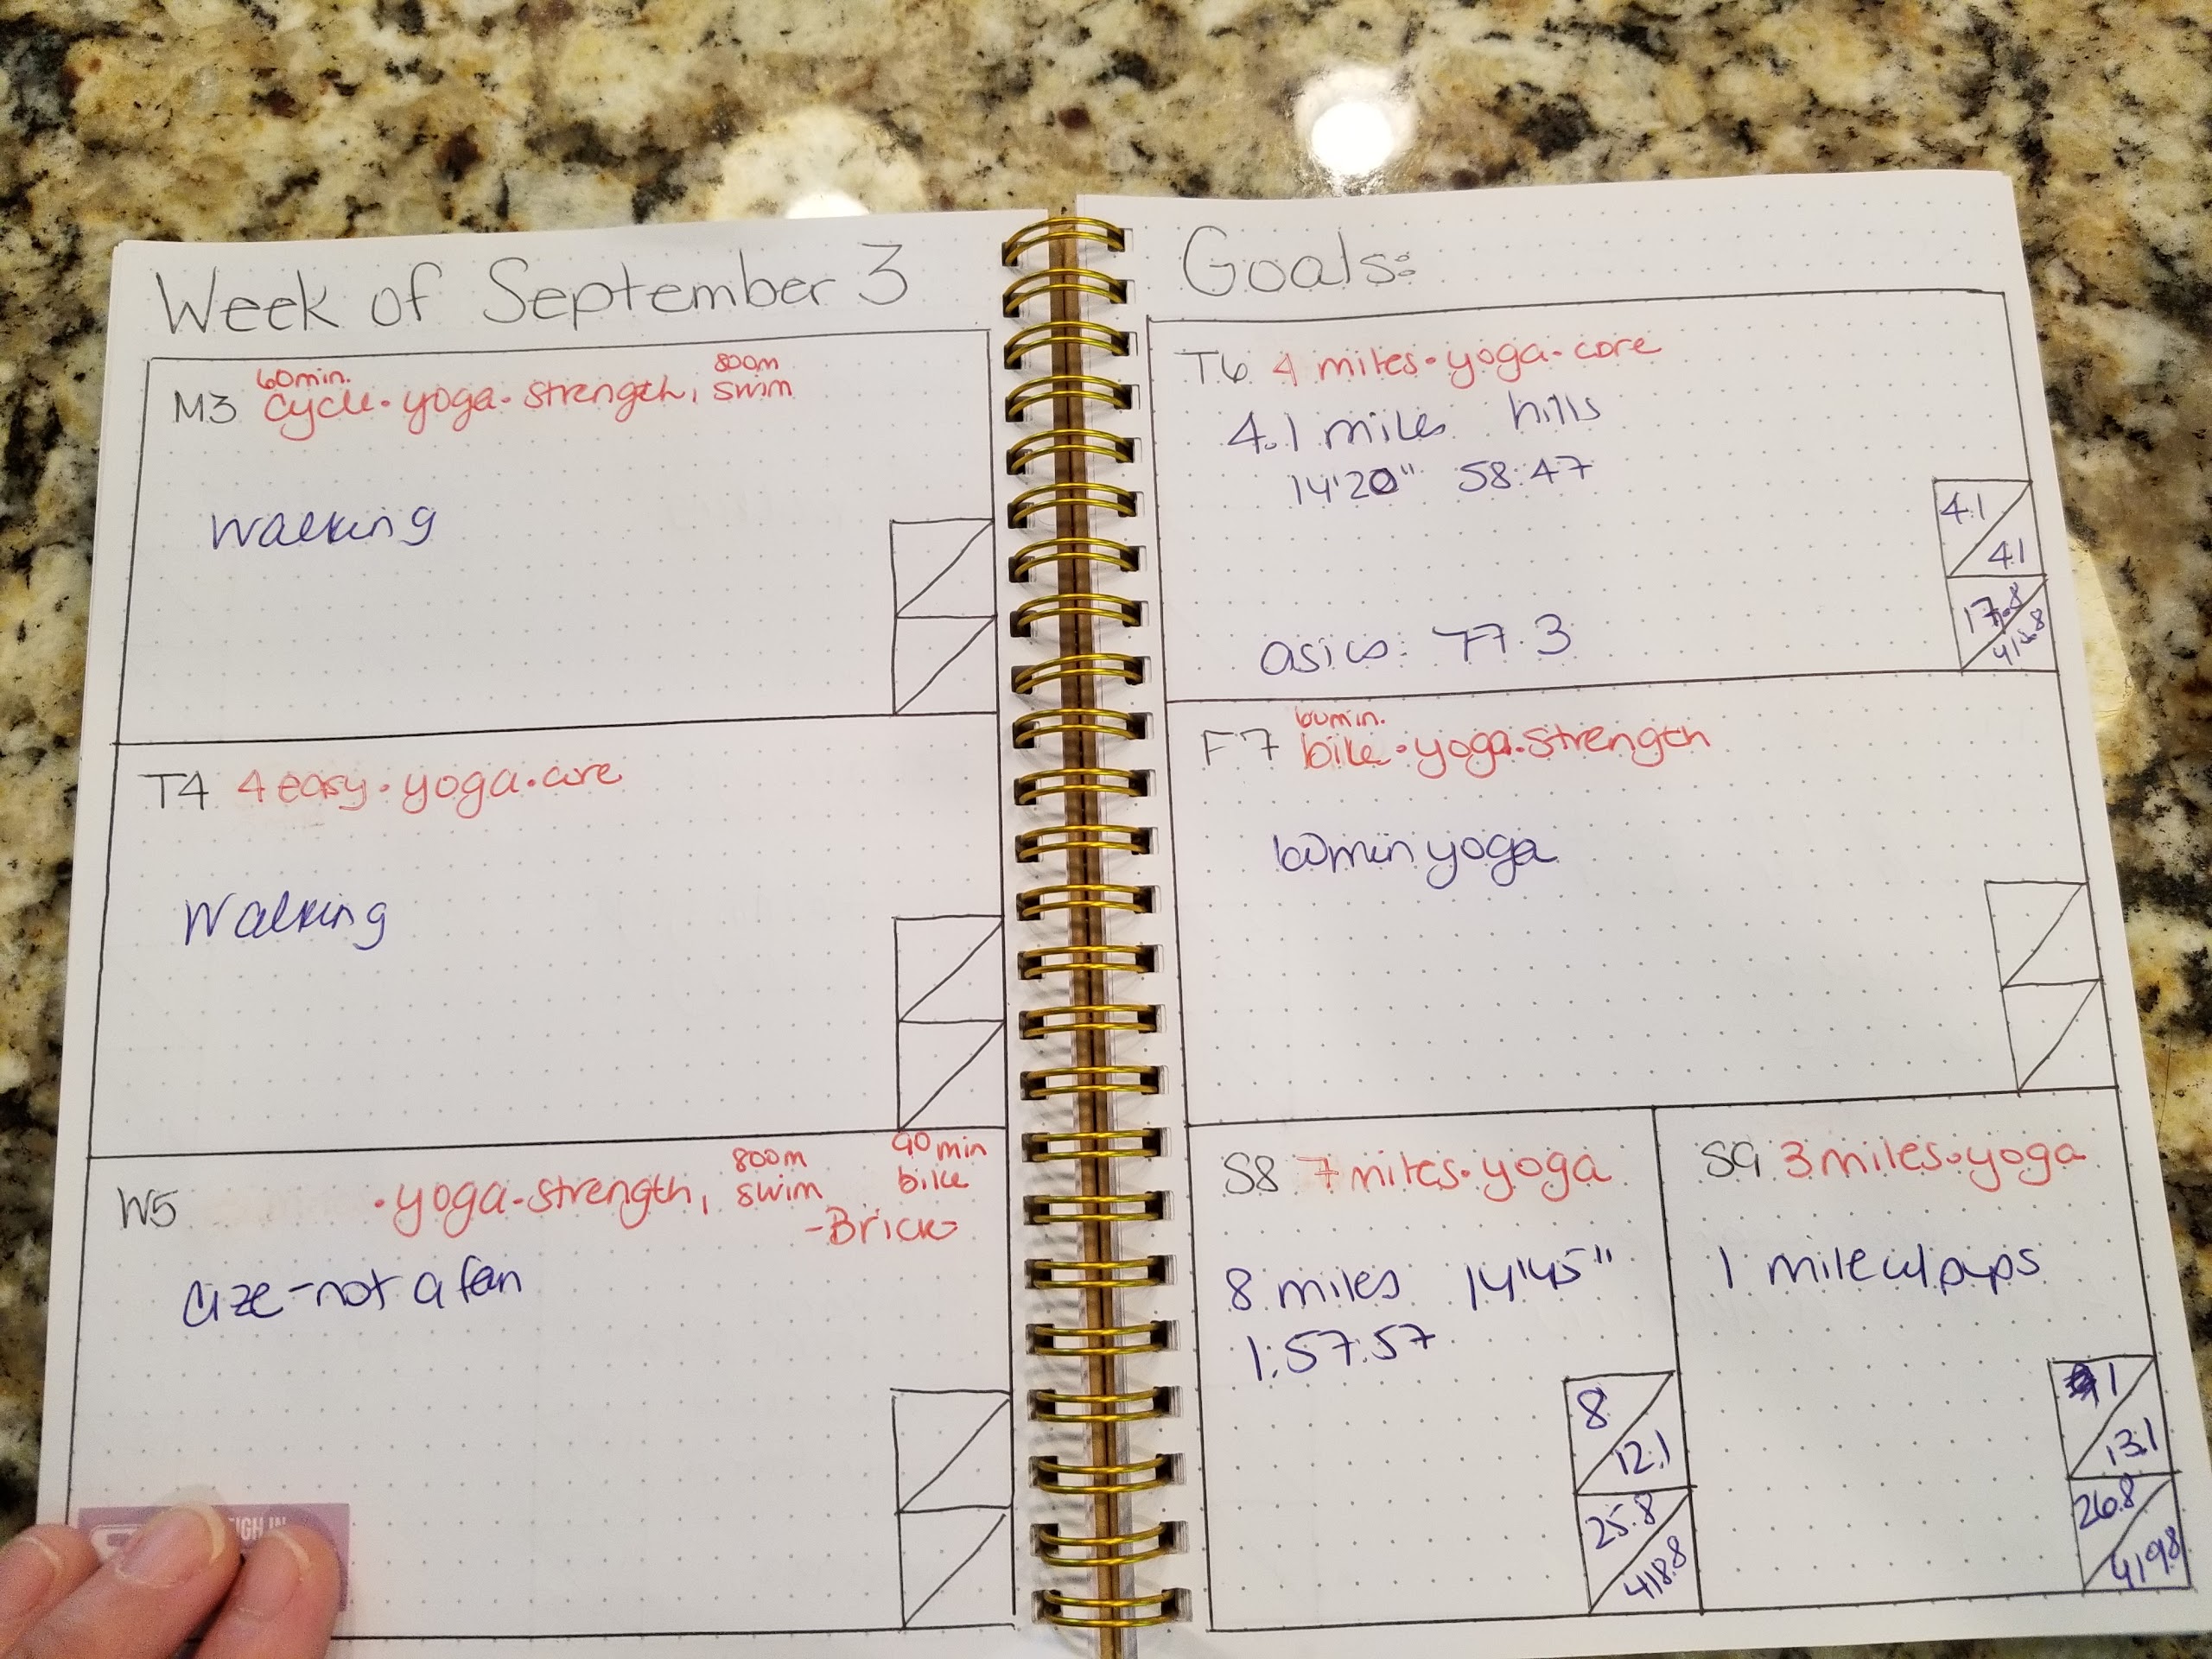 Week of September 3
M3 60min. cycle · yoga · strength, 800m swim
walking
T4 4 easy · yoga · core
Walking
W5 · yoga - strength, 800m swim 90 min bike
- Brick
cize - not a fan
Goals:
T6 4 miles · yoga · core
4.1 miles hills
14'20" 58:47
4.1
4.1
17.8
asics: 77.3
F7 60min. bike · yoga · strength
60min yoga
S8 7 miles · yoga
8 miles 14'45"
1:57:57
8
12.1
25.8
418.8
S9 3 miles · yoga
1 mile w/ pups
1
13.1
26.8
419.8